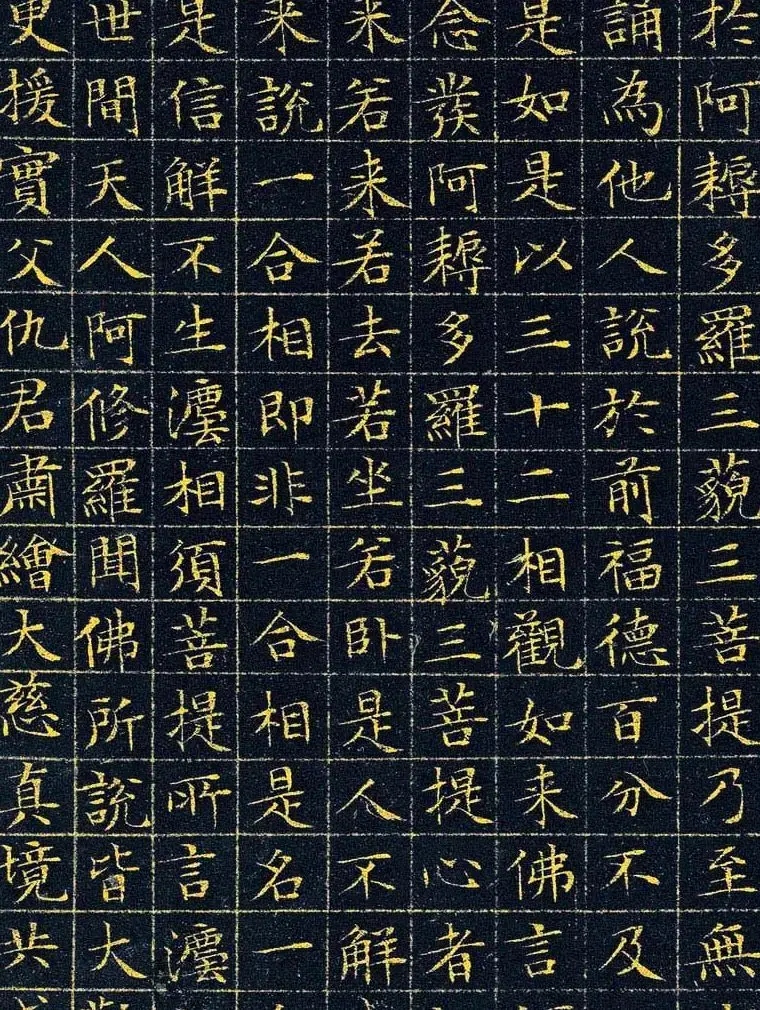 於阿耨多羅三藐三菩提乃至無
誦為他人說於前福德百分不及
是如是以三十二相觀如来佛言
念發阿耨多羅三藐三菩提心者
来若来若去若坐若卧是人不解
来說一合相即非一合相是名一
是信解不生灋相須菩提所言灋
世間天人阿修羅聞佛所說皆大
更援實父仇君肅繪大慈真境共